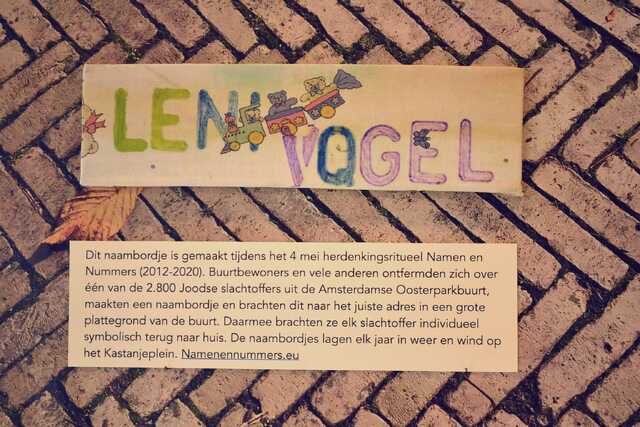 LENI VOGEL
Dit naambordje is gemaakt tijdens het 4 mei herdenkingsritueel Namen en
Nummers (2012-2020). Buurtbewoners en vele anderen ontfermden zich over
één van de 2.800 Joodse slachtoffers uit de Amsterdamse Oosterparkbuurt,
maakten een naambordje en brachten dit naar het juiste adres in een grote
plattegrond van de buurt. Daarmee brachten ze elk slachtoffer individueel
symbolisch terug naar huis. De naambordjes lagen elk jaar in weer en wind op
het Kastanjeplein. Namenennummers.eu